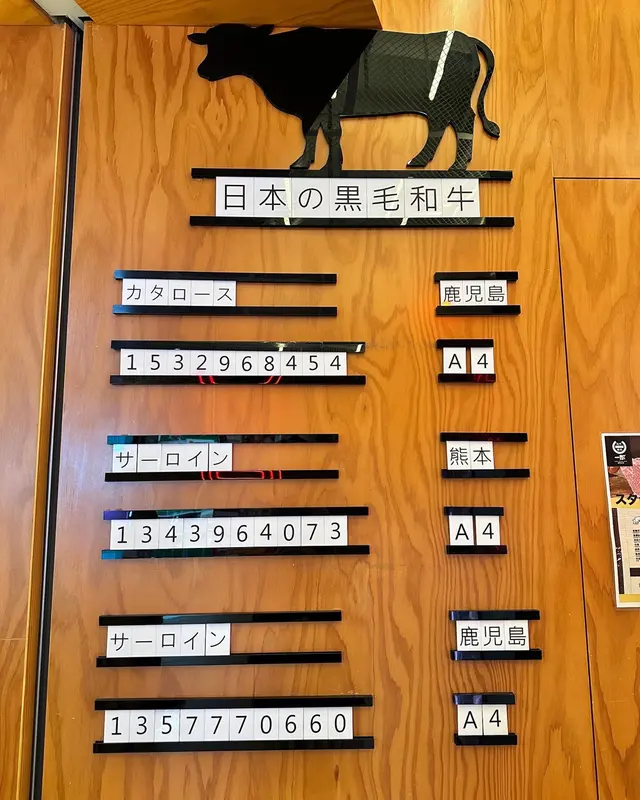 日本の黒毛和牛
カタロース 鹿児島
1532968454 A4
サーロイン 熊本
1343964073 A4
サーロイン 鹿児島
1357770660 A4
スタ